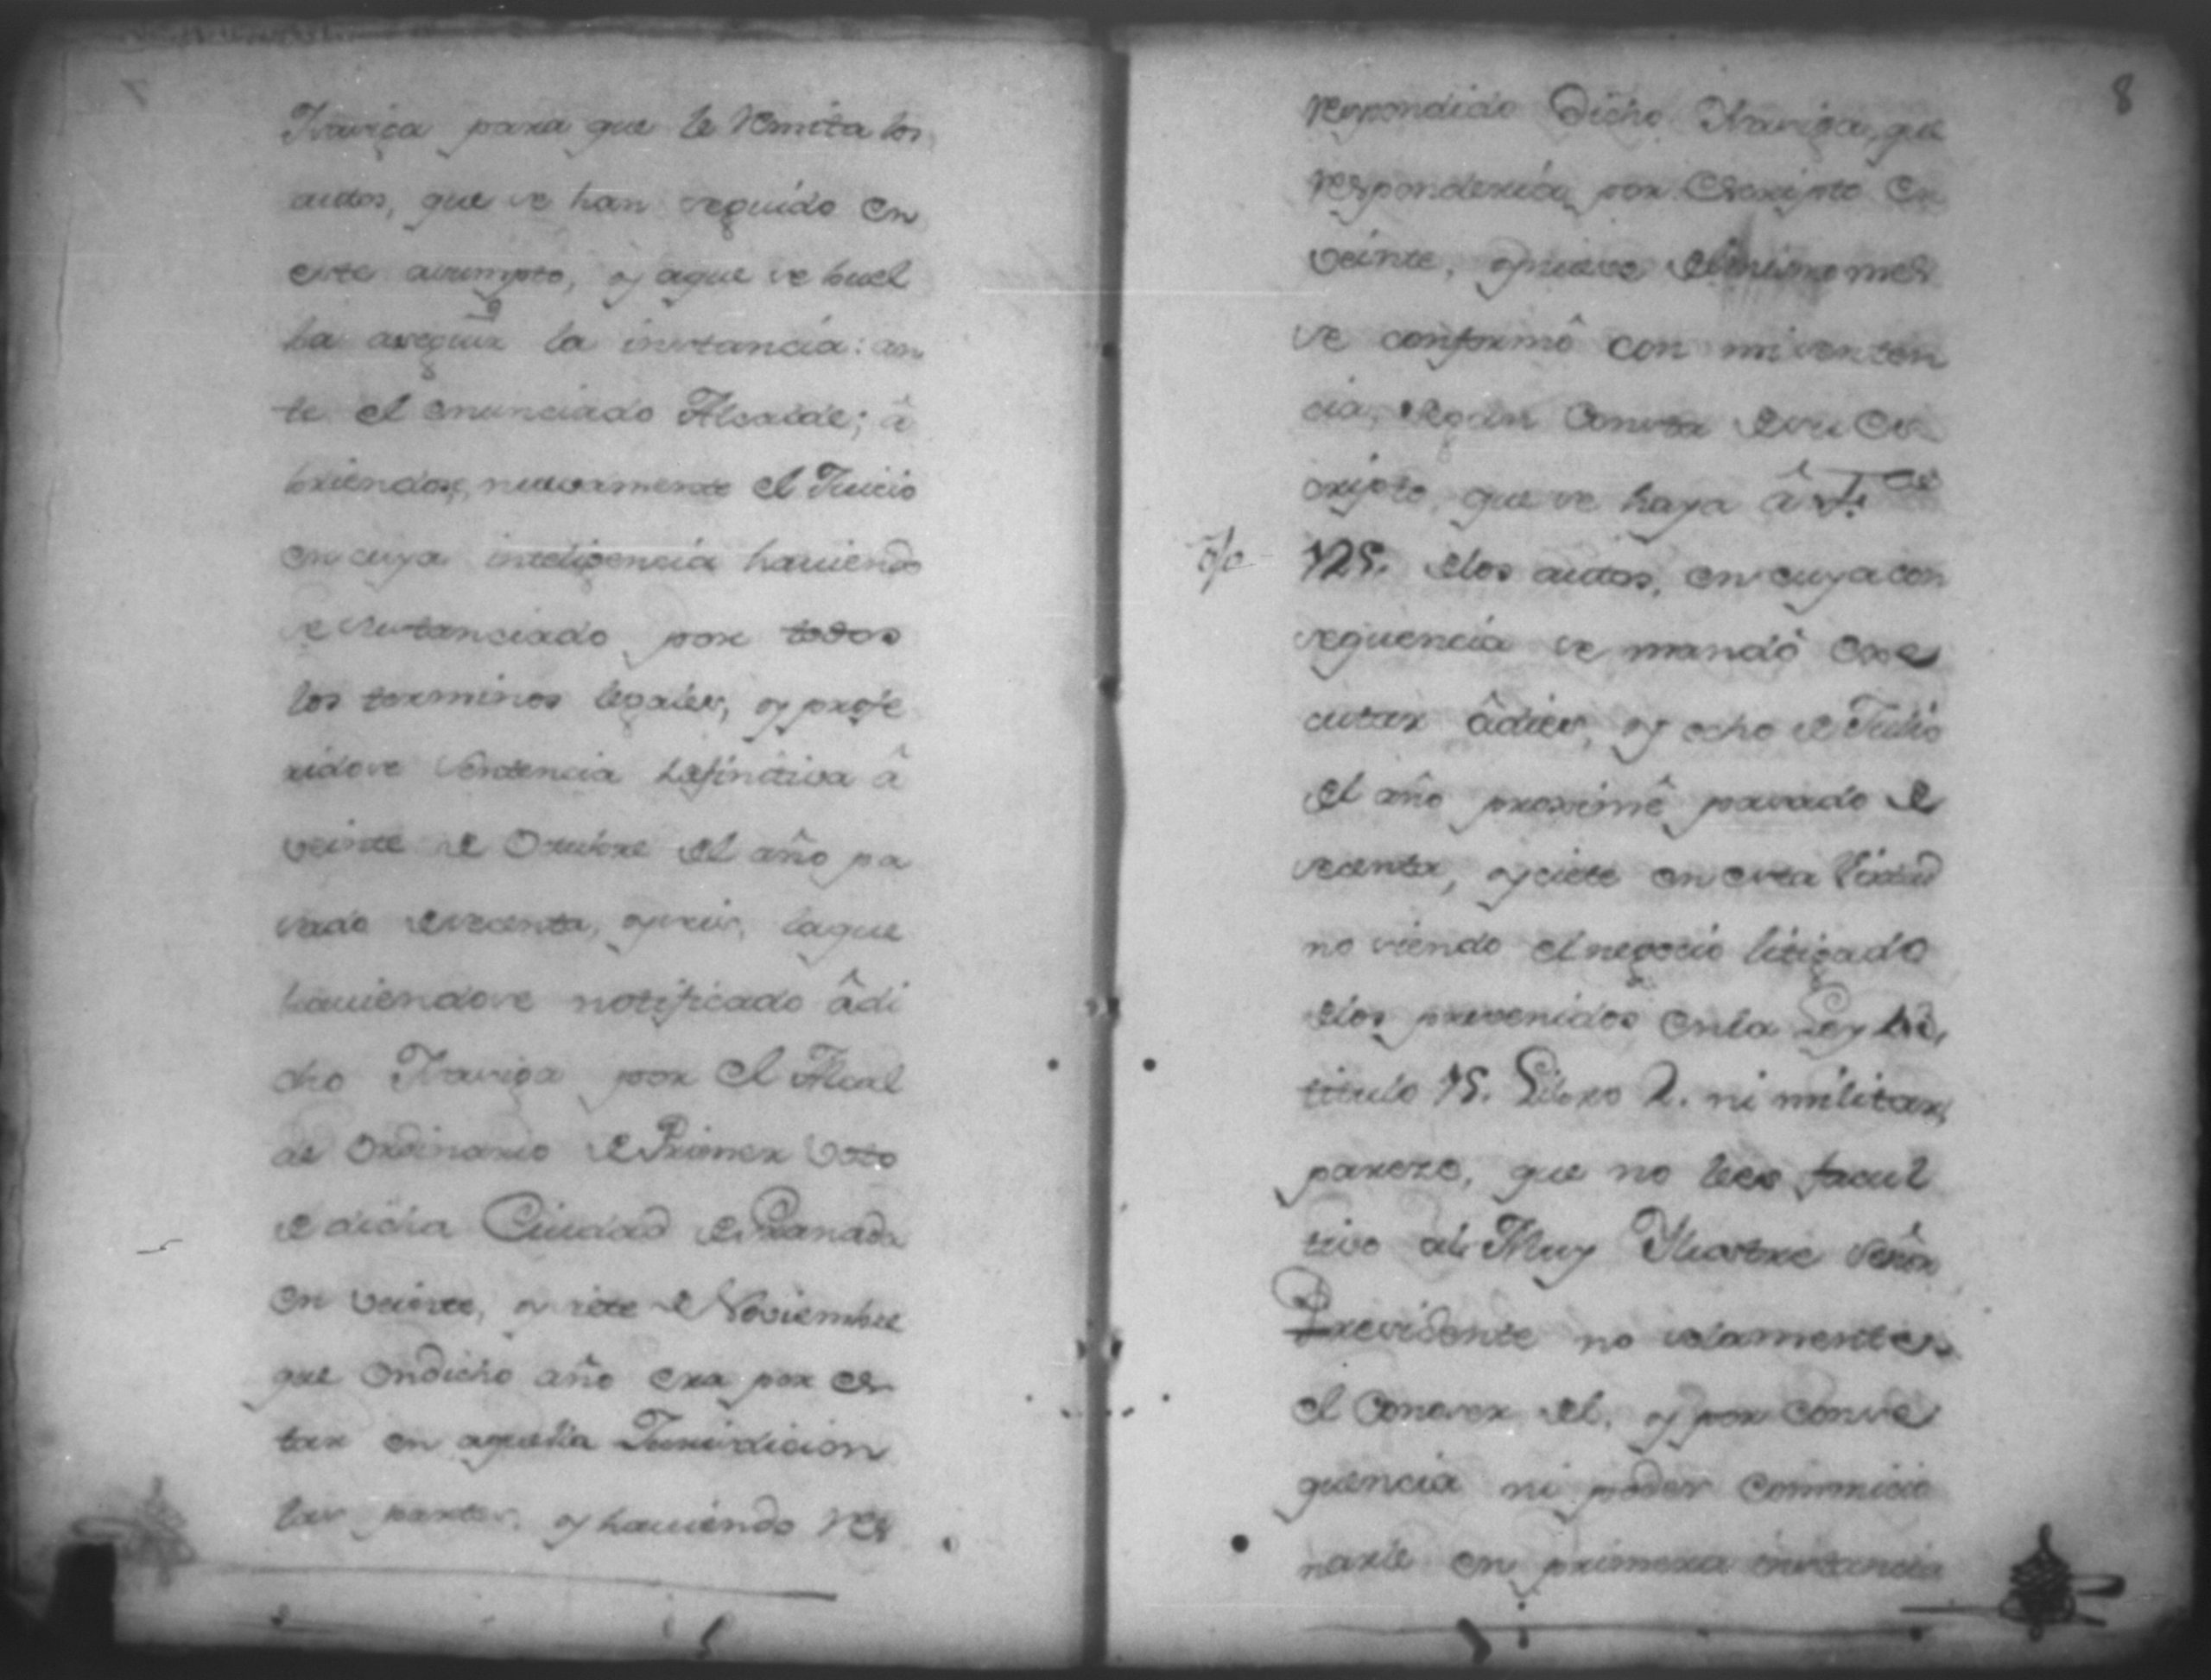 Traviga para que le remita los
autos, que se han seguido en
este asumpto, y aque se buel
ba aseguir la instancia: an
te el enunciado Alcalde; â
briendose, nuevamente el Juicio
en cuya inteligencia haviendo
se sustanciado por todos
los terminos legales, y profe
ridose Sentencia definitiva â
veinte de Octubre del año pa
sado de sesenta, y seis, laque
haviendose notificado âdi
cho Traviga por el Alcal
de Ordinario de Primer Voto
de dicha Ciudad de Granada
en veinte, y siete de Noviembre
que endicho año era por es
tar en aquella Jurisdicion
las partes, y haviendo res
8
respondido Dicho Traviga, que
responderia por Escripto en
veinte, y nueve del mismo mes
se conformô con mi senten
cia, segun Consta de su Es
cripto, que se haya â
125. de los autos, en cuya con
sequencia se mandô exe
cutar âdies, y ocho de Julio
del año proximô pasado de
sesenta, y siete en esta
no siendo el negocio litigado
de los prevenidos en la Ley
titulo 15. Libro 2. ni militar,
parece, que no le es facul
tivo al Muy Ylustre Señor
Presidente no solamente
el Conoser del, y por conse
quencia ni poder Commicio
narle en primera instancia